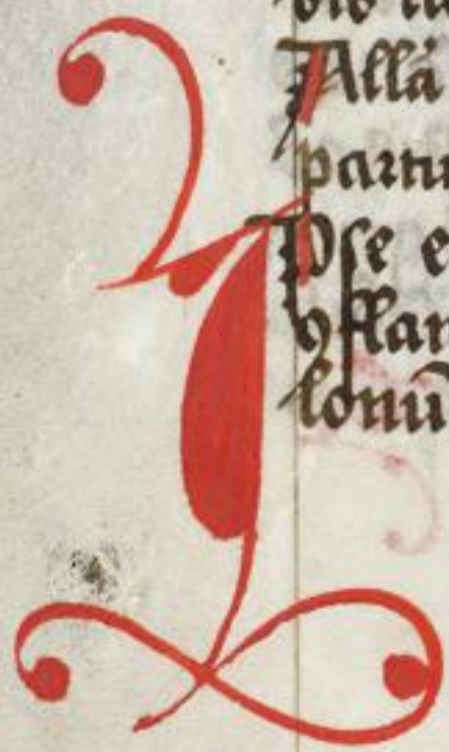 Allā
partu
I Pse e
ꝯflan
lonū